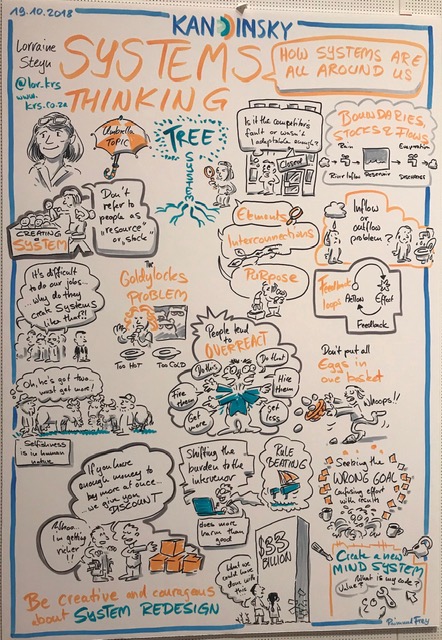 19.10.2018
KANDINSKY
Lorraine
Steyn
@lor_krs
www.
krs.co.za
SYSTEMS
THINKING
HOW SYSTEMS ARE
ALL AROUND US
Umbrella
TOPIC
TREE
SYSTEM
Is it the competitor's
fault or wasn't
I adaptable enough?
Closed
BOUNDARIES,
STOCKS & FLOWS
Rain
Evaporation
River Inflow
Reservoir
Discharge
CREATING
SYSTEM
Don't
refer to
people as
"resource"
or "stock"
Elements
Interconnections
Purpose
Inflow
or
outflow
problem?
It's difficult
to do our jobs...
why do they
create Systems
like that?!
The
Goldylocks
PROBLEM
TOO HOT
TOO COLD
Feedback
loops
Action
Effect
Feedback
People tend
to
OVERREACT
Do this
Do that
Fire
them
Hire
them
Get
more
get
less
Don't put all
Eggs in
one basket
Whoops!!
Oh, he's got two...
must get more!
Selfishness
is in human
nature
If you have
enough money to
buy more at once...
we give you
DISCOUNT
I'm getting
richer!!
Shifting the
burden to the
intervenor
does more
harm than
good
RULE
BEATING
Seeking the
WRONG GOAL
Confusing effort
with results
$93
BILLION
What we
could have
done with
this...
Create a new
MIND SYSTEM
What is my code?
Value?
Be creative and courageous
about SYSTEM REDESIGN